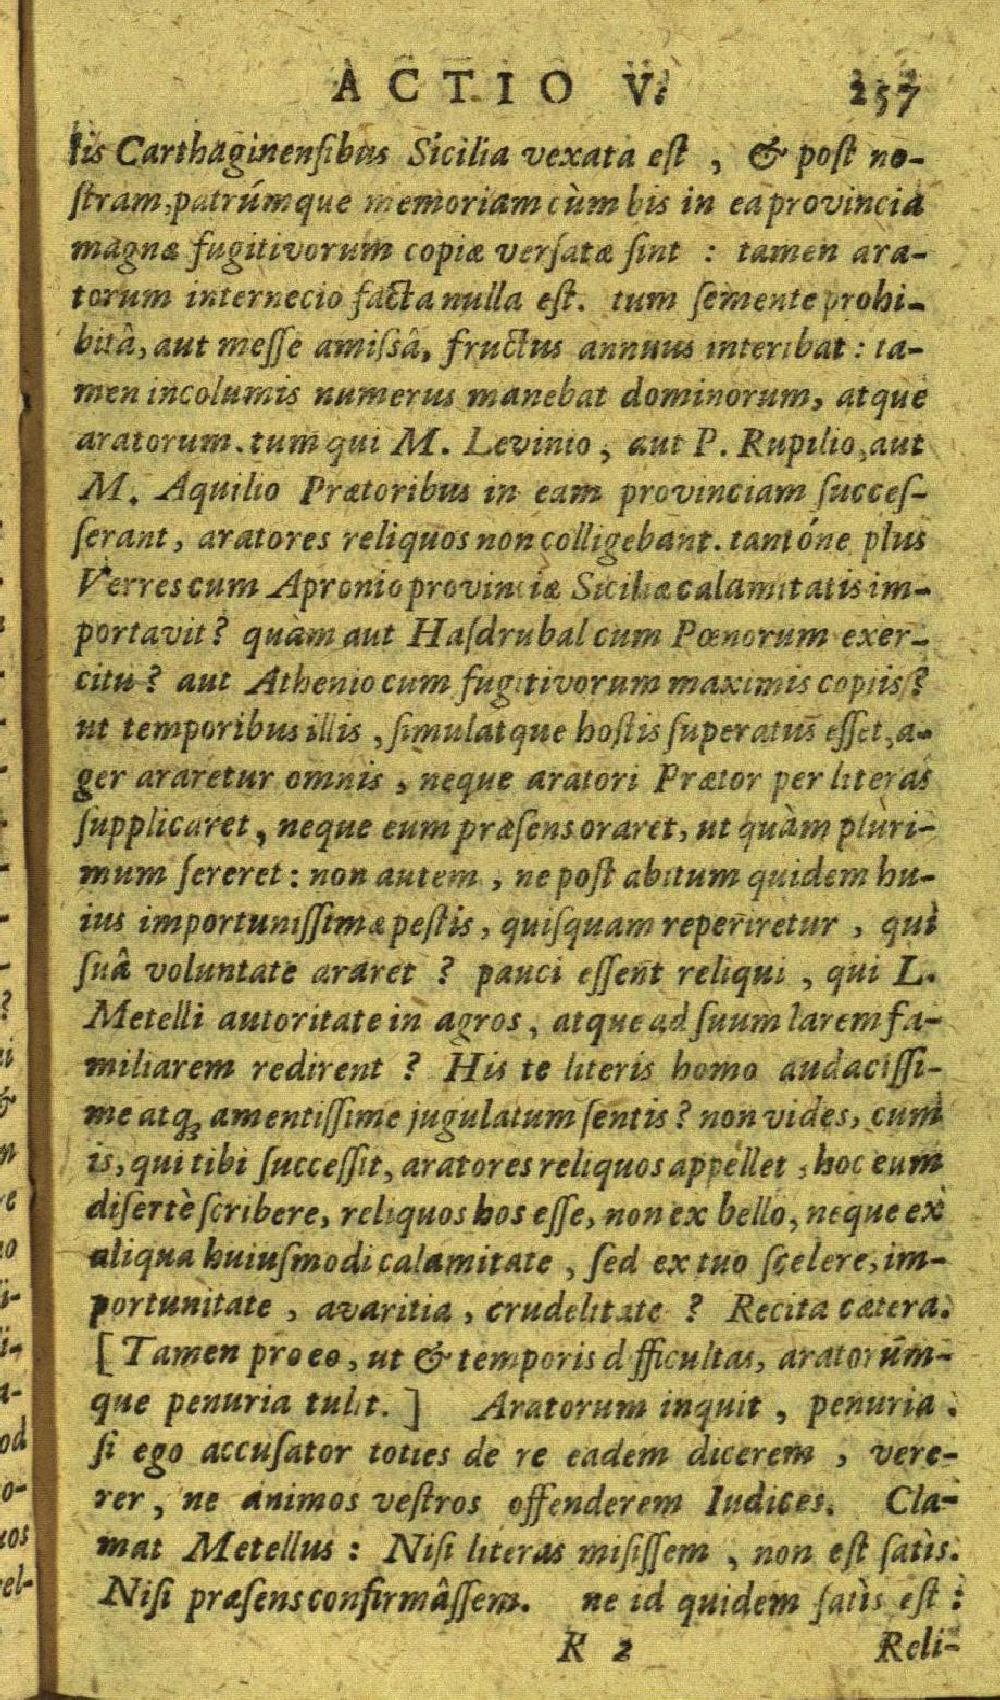 ACTIO V. 257
lis Carthaginensibus Sicilia vexata est, & post no-
stram, patrúmque memoriam cùm bis in ea provincia
magnæ fugitivorum copiæ versatæ sint : tamen ara-
torum internecio facta nulla est. tum semente prohi-
bitâ, aut messe amissâ, fructus annuus interibat : ta-
men incolumis numerus manebat dominorum, atque
aratorum. tum qui M. Levinio, aut P. Rupilio, aut
M. Aquilio Prætoribus in eam provinciam succes-
serant, aratores reliquos non colligebant. tantóne plus
Verres cum Apronio provinciæ Siciliæ calamitatis im-
portavit? quàm aut Hasdrubal cum Pœnorum exer-
citu? aut Athenio cum fugitivorum maximis copiis?
ut temporibus illis, simulatque hostis superatus esset, a-
ger araretur omnis, neque aratori Prætor per literas
supplicaret, neque eum præsens oraret, ut quàm pluri-
mum sereret : non autem, ne post abitum quidem hu-
ius importunissimæ pestis, quisquam reperiretur, qui
suâ voluntate araret ? pauci essent reliqui, qui L.
Metelli autoritate in agros, atque ad suum larem fa-
miliarem redirent ? His te literis homo audacissi-
me atq; amentissime jugulatum sentis? non vides, cum
is, qui tibi successit, aratores reliquos appellet, hoc eum
disertè scribere, reliquos hos esse, non ex bello, neque ex
aliqua huiusmodi calamitate, sed ex tuo scelere, im-
portunitate, avaritia, crudelitate ? Recita cætera.
[ Tamen pro eo, ut & temporis difficultas, aratorúm-
que penuria tulit. ] Aratorum inquit, penuria.
si ego accusator toties de re eadem dicerem, vere-
rer, ne animos vestros offenderem Iudices. Cla-
mat Metellus : Nisi literas misissem, non est satis.
Nisi præsens confirmâssem. ne id quidem satìs est :
R 2 Reli-